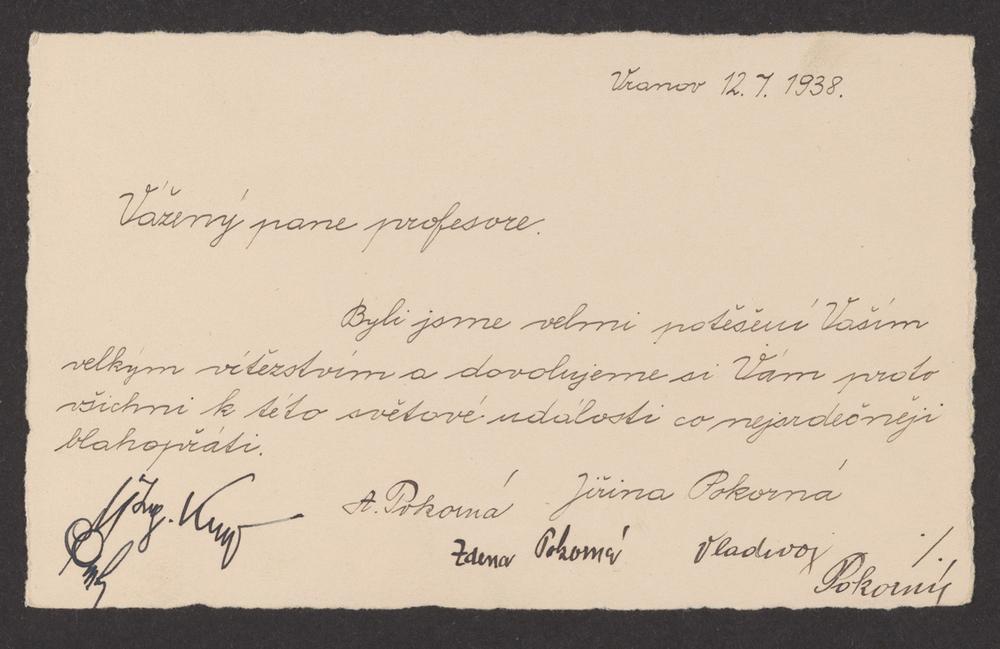 Vranov 12. 7. 1938.
Vážený pane profesore.
Byli jsme velmi potěšeni Vaším
velkým vítězstvím a dovolujeme si Vám proto
všichni k této světové události co nejsrdečněji
blahopřáti.
A. Pokorná Jiřina Pokorná
Zdena Pokorná Vladivoj
Pokorný